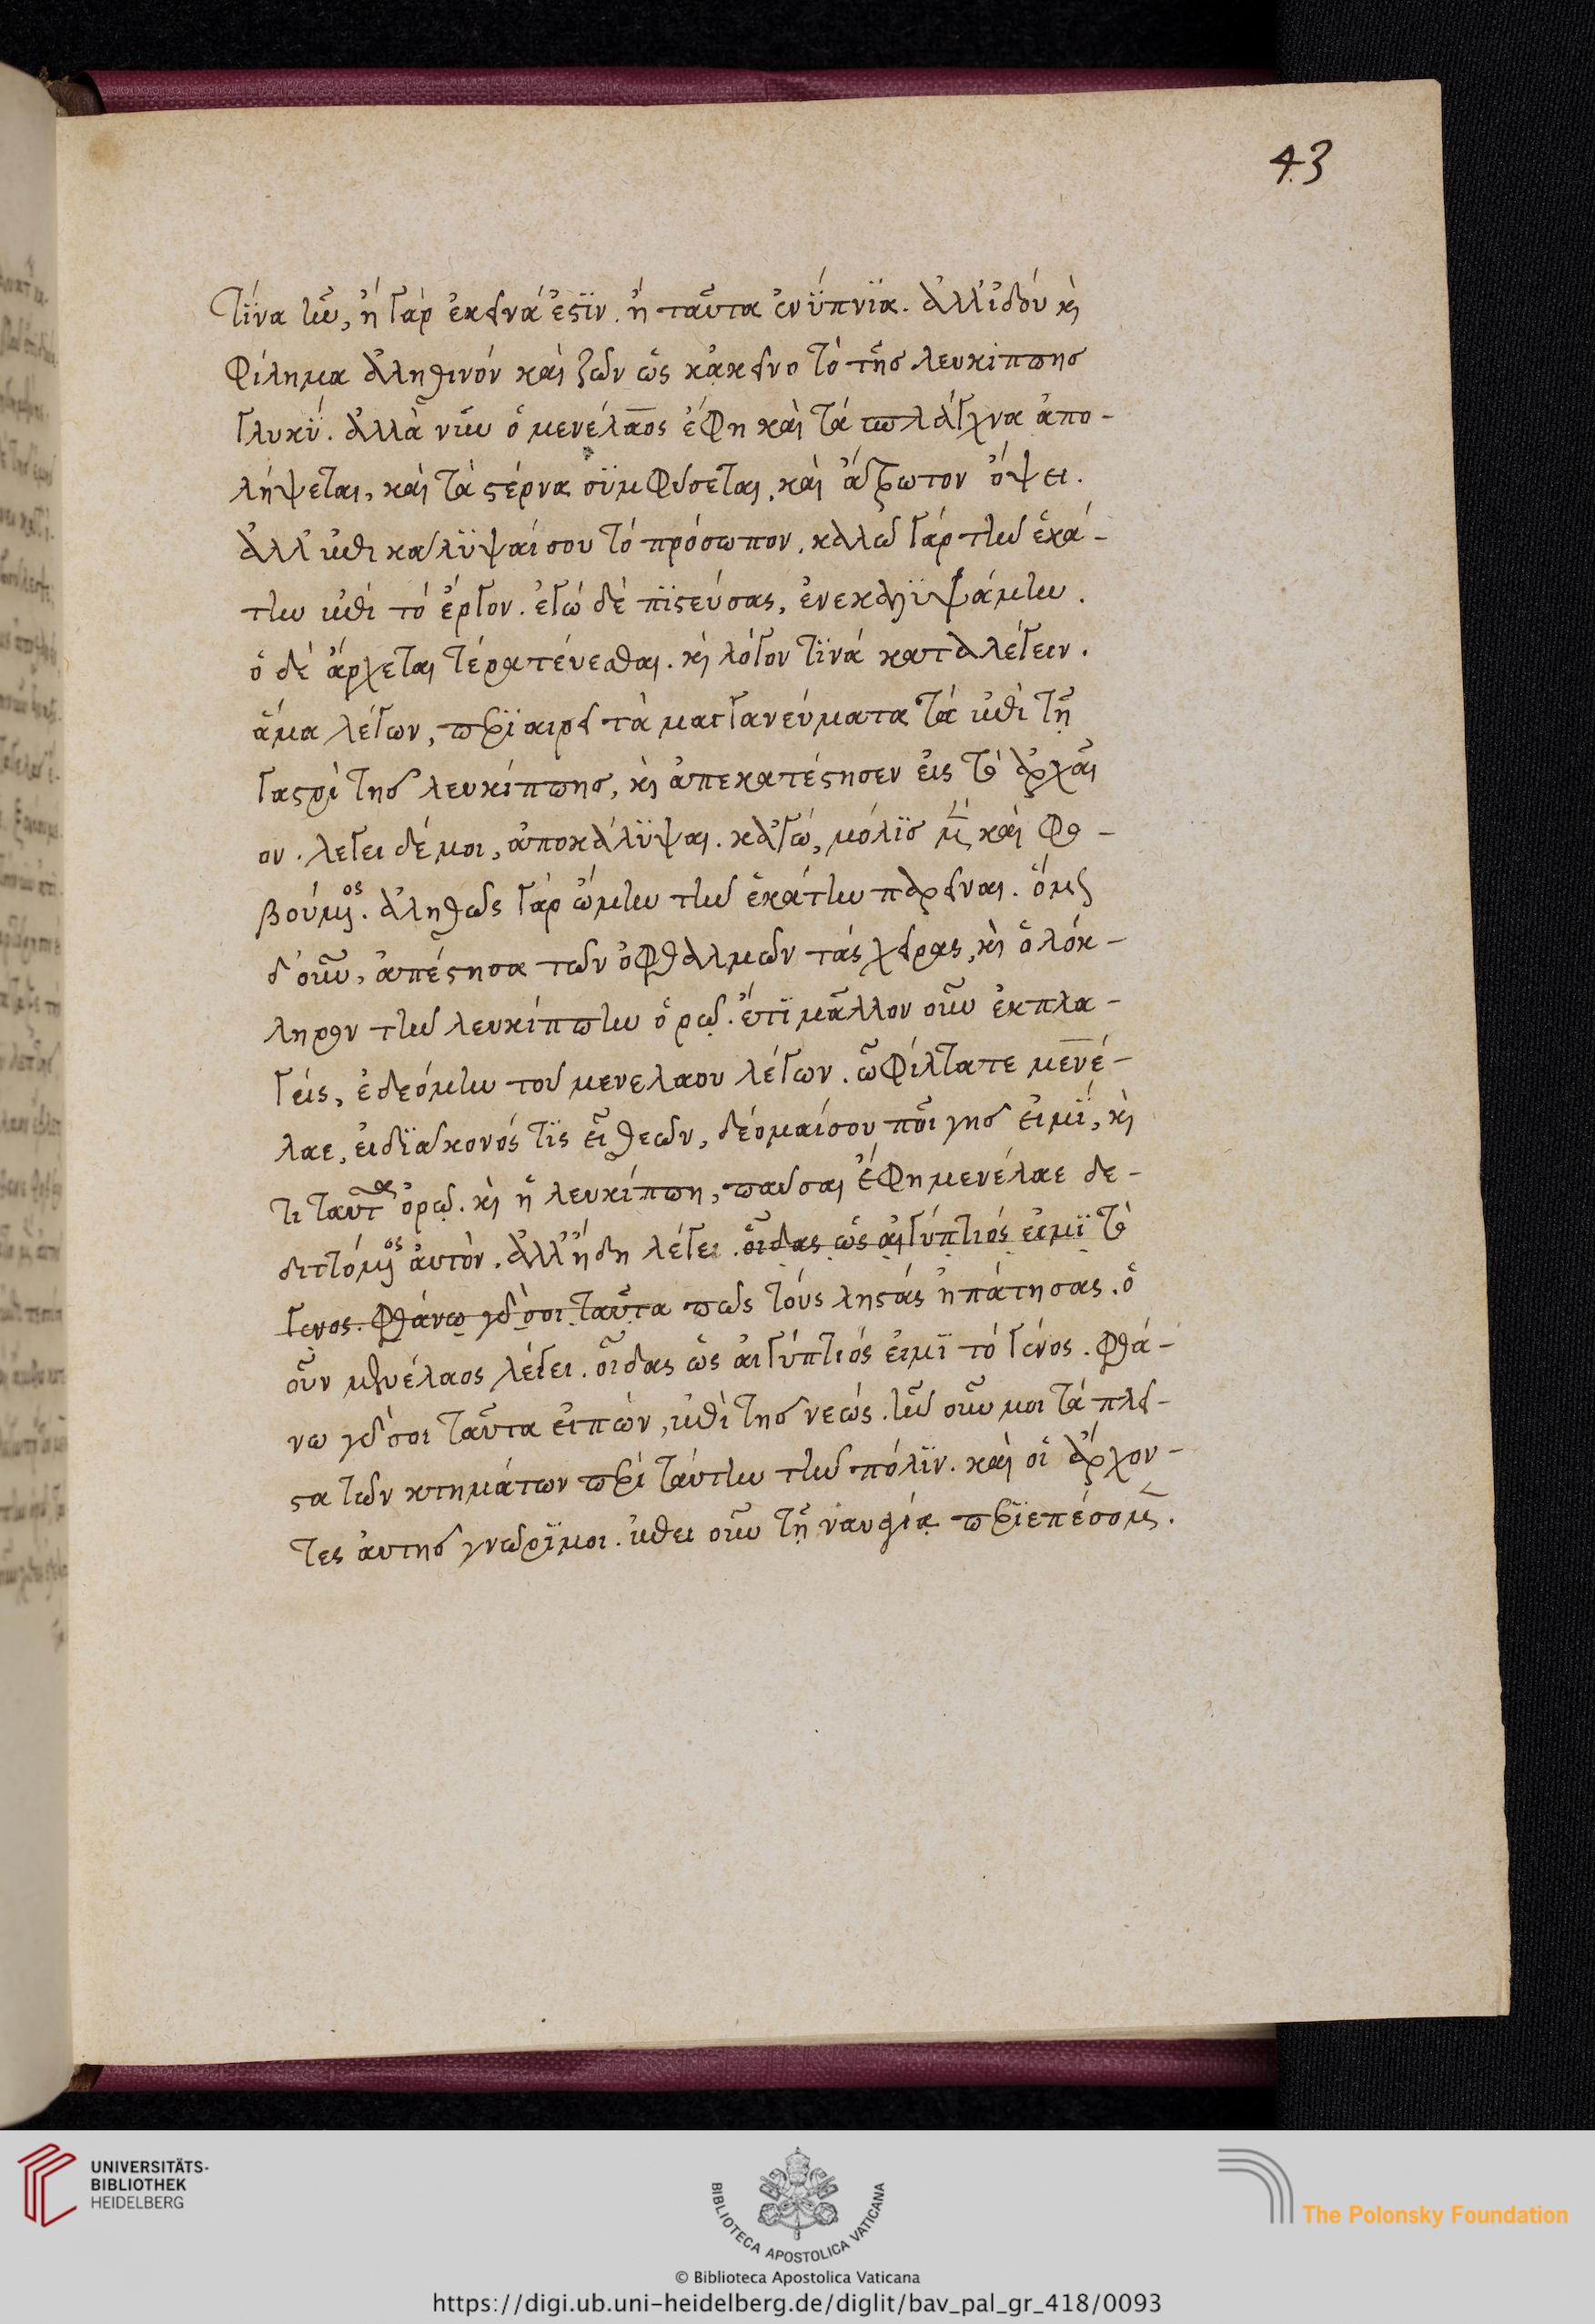 43
τϊνα ἦν, ἢ γὰρ ἐκεινά ἐστϊν. ἢ ταῦτα ἐνϋπνϊα. ἀλλ' ἰδού κὶ
φίλημα ἀληθινόν καὶ ζῶν ὡς κἀκεινο τὸ τῆς λευκίππης
γλυκϋ. ἀλλὰ νῦν ὁ μενέλαος ἔφη καὶ τά σπλάγχνα ἀπο-
λήψεται, καὶ τὰ στέρνα σϋμφυσεται, καὶ ἄτρωτον ὄψει.
ἀλλ' ἐπικαλϋψαί σου τό πρόσωπον, καλῶ γάρ τὴν ἑκά-
την ἐπὶ τό ἔργον. ἐγώ δὲ πϊστεύσας, ἐνεκαλϋψάμην.
ὁ δὲ ἄρχεται τέρατέυεσθαι. κὶ λόγον τϊνά καταλέγειν.
ἅμα λέγων, περϊαιρει τὰ μαγγανεύματα τά ἐπὶ τῇ
γαστρὶ της λευκίππης, κὶ ἀπεκατέστησεν εἰς τὸ ἀρχαῖ
ον. λεγει δέ μοι, ἀποκάλϋψαι. κἀγώ, μόλϊς μὲν καὶ φο-
βούμενος. ἀληθῶς γὰρ ᾤμην τὴν ἑκάτην παρειναι. ὅμως
δ' οὖν, ἀπέστησα τῶν ὀφθαλμῶν τάς χειρας, κὶ ὁλόκ-
ληρον τὴν λευκίππην ὁρῶ. ἔτϊ μᾶλλον οὖν ἐκπλα-
γείς, ἐδεόμην τοῦ μενελαου λέγων. ὦ φίλτατε μενέ-
λαε, εἰ δϊακονός τϊς εἶ θεῶν, δέομαί σου ποῖ γης εἰμϊ, κὶ
τι ταῦτα ὁρῶ. κὶ ἡ λευκίππη, παῦσαι ἔφη μενέλαε δε-
διττόμενος ἀυτὸν. ἀλλ' ἤδη λέγει. οἶδας ὡς αἰγύπτιός εἰμϊ τὸ
γενος. φθάνω γὰρ σοι ταῦτα πῶς τούς ληστάς ἠπάτησας. ὁ
οὖν μενέλαος λέγει. οἶδας ὡς αἰγύπτιός εἰμϊ τό γένος. φθά-
νω γὰρ σοι ταῦτα εἰπών, ἐπὶ της νεώς. ἦν οὖν μοι τά πλει-
στα τῶν κτημάτων περὶ ταύτην τὴν πόλϊν. καὶ οἱ ἄρχον-
τες ἀυτης γνωρϊμοι. ἐπεὶ οὖν τῇ ναυαγίᾳ περϊεπέσομεν.
UNIVERSITÄTS-
BIBLIOTHEK
HEIDELBERG
BIBLIOTECA APOSTOLICA VATICANA
The Polonsky Foundation
© Biblioteca Apostolica Vaticana
https://digi.ub.uni-heidelberg.de/diglit/bav_pal_gr_418/0093